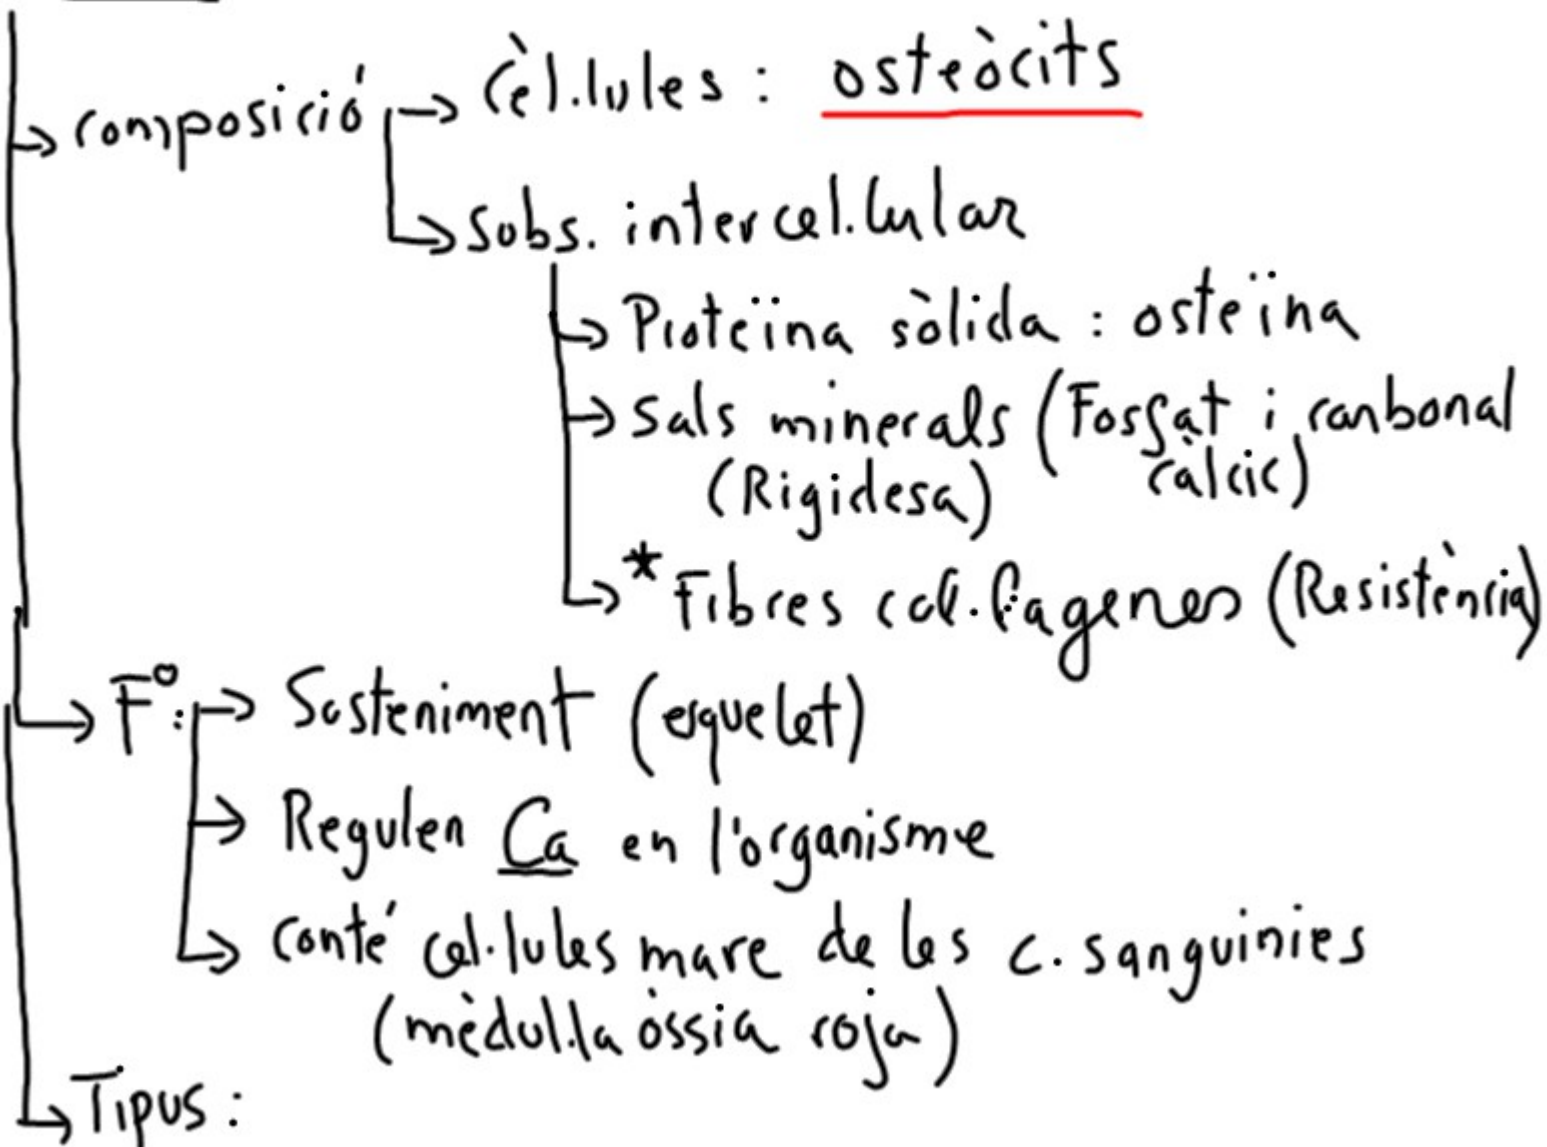 → composició → Cèl.lules : osteòcits
→ Subs. intercel.lular
→ Proteïna sòlida : osteïna
→ Sals minerals (Fosfat i carbonat
(Rigidesa) càlcic)
→ * Fibres col.lagenes (Resistència)
→ Fº: → Sosteniment (esquelet)
→ Regulen Ca en l'organisme
→ Conté cel.lules mare de les c. sanguinies
(mèdul.la òssia roja)
→ Tipus :